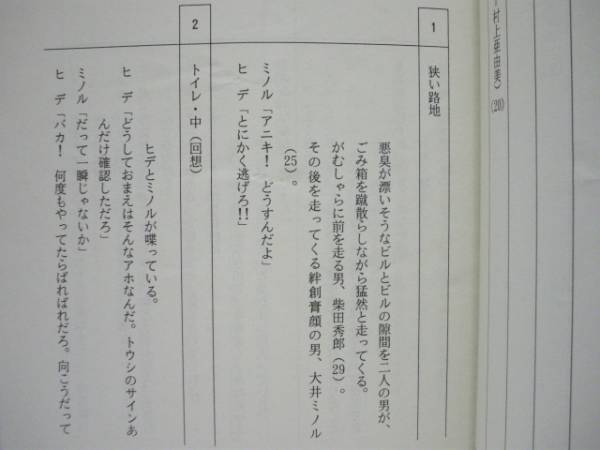 村上亜由美》(20)
1 狭い路地
悪臭が漂いそうなビルとビルの隙間を二人の男が、
ごみ箱を蹴散らしながら猛然と走ってくる。
がむしゃらに前を走る男、柴田秀郎(29)。
その後を走ってくる絆創膏顔の男、大井ミノル
(25)。
ミノル「アニキ! どうすんだよ」
ヒ デ「とにかく逃げろ!!」
2 トイレ・中(回想)
ヒデとミノルが喋っている。
ヒ デ「どうしておまえはそんなアホなんだ。トウシのサインあ
んだけ確認しただろ」
ミノル「だって一瞬じゃないか」
ヒ デ「バカ! 何度もやってたらばればれだろ。向こうだって